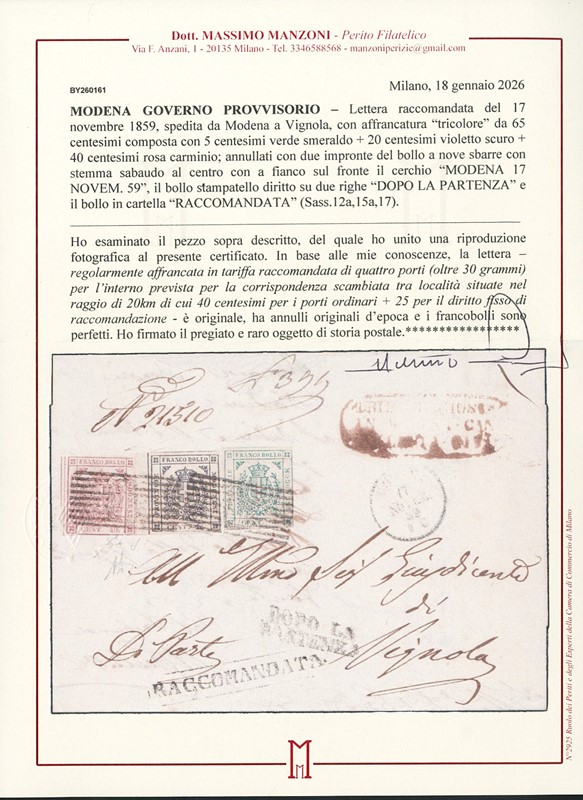 Dott. MASSIMO MANZONI - Perito Filatelico
Via F. Anzani, 1 - 20135 Milano - Tel. 3346588568 - manzoniperizie@gmail.com
BY260161
Milano, 18 gennaio 2026
MODENA GOVERNO PROVVISORIO – Lettera raccomandata del 17
novembre 1859, spedita da Modena a Vignola, con affrancatura “tricolore” da 65
centesimi composta con 5 centesimi verde smeraldo + 20 centesimi violetto scuro +
40 centesimi rosa carminio; annullati con due impronte del bollo a nove sbarre con
stemma sabaudo al centro con a fianco sul fronte il cerchio “MODENA 17
NOVEM. 59”, il bollo stampatello diritto su due righe “DOPO LA PARTENZA” e
il bollo in cartella “RACCOMANDATA” (Sass.12a,15a,17).
Ho esaminato il pezzo sopra descritto, del quale ho unito una riproduzione
fotografica al presente certificato. In base alle mie conoscenze, la lettera –
regolarmente affrancata in tariffa raccomandata di quattro porti (oltre 30 grammi)
per l'interno prevista per la corrispondenza scambiata tra località situate nel
raggio di 20km di cui 40 centesimi per i porti ordinari + 25 per il diritto fisso di
raccomandazione - è originale, ha annulli originali d'epoca e i francobolli sono
perfetti. Ho firmato il pregiato e raro oggetto di storia postale.******************
FRANCO BOLLO
FRANCO BOLLO
FRANCO BOLLO
CENT
di
Vignola
Di Parte
DOPO LA
PARTENZA
RACCOMANDATA
N°2925 Ruolo dei Periti e degli Esperti della Camera di Commercio di Milano
M